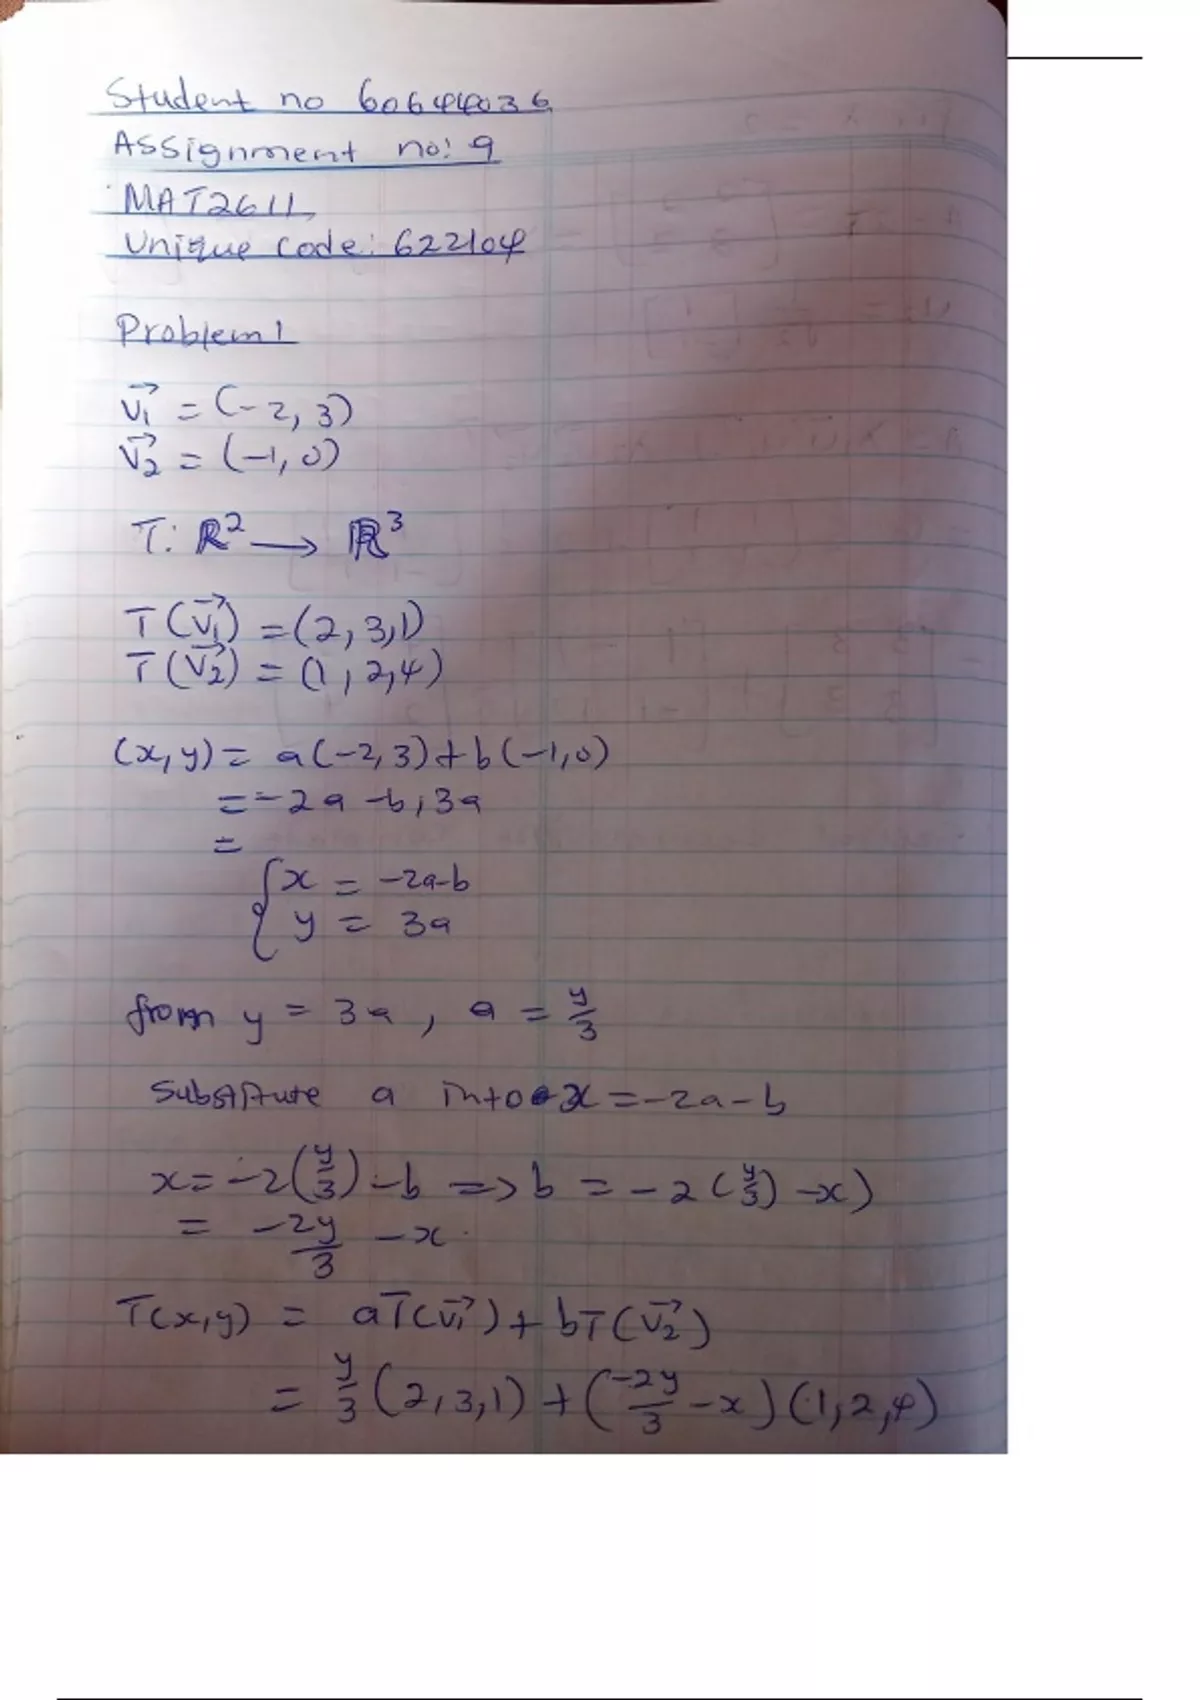 Student no 60644036
Assignment no: 9
MAT2611,
Unique code: 622104
Problem 1
v₁→ = (-2, 3)
v₂→ = (-1, 0)
T: ℝ² → ℝ³
T(v₁→) = (2, 3, 1)
T(v₂→) = (1, 2, 4)
(x, y) = a(-2, 3) + b(-1, 0)
= -2a - b, 3a
=
{ x = -2a-b
y = 3a
from y = 3a, a = y/3
Substitute a into x = -2a - b
x = -2(y/3) - b => b = -2(y/3) - x)
= -2y/3 - x
T(x, y) = aT(v₁→) + bT(v₂→)
= y/3 (2, 3, 1) + (-2y/3 - x)(1, 2, 4)